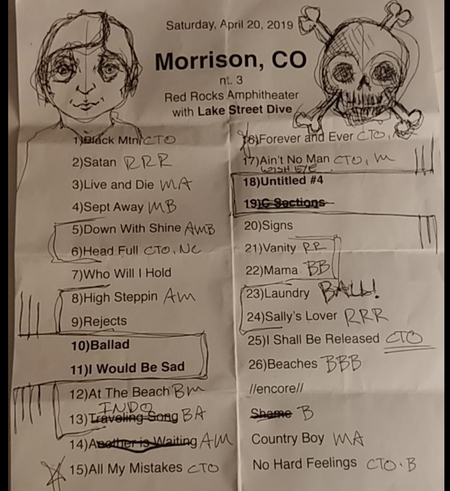 Saturday, April 20, 2019
Morrison, CO
nt. 3
Red Rocks Amphitheater
with Lake Street Dive
1)Black Mtn CTO
2)Satan RRR
3)Live and Die MA
4)Sept Away MB
5)Down With Shine AMB
6)Head Full CTO, NC
7)Who Will I Hold
8)High Steppin AM
9)Rejects
10)Ballad
11)I Would Be Sad
12)At The Beach BM
INDO
13)Traveling Song BA
14)Another is Waiting AM
15)All My Mistakes CTO
16)Forever and Ever CTO,
17)Ain't No Man CTO, M
WISH EYE
18)Untitled #4
19)C Sections
20)Signs
21)Vanity RR
22)Mama BB
23)Laundry BALL!
24)Sally's Lover RRR
25)I Shall Be Released CTO
26)Beaches BBB
//encore//
Shame B
Country Boy MA
No Hard Feelings CTO, B